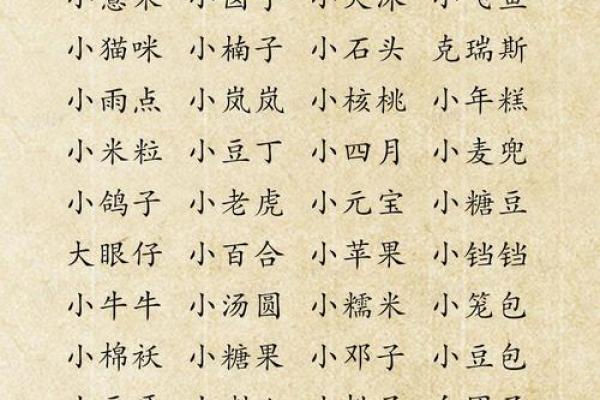 小猫咪 小楠子 小石头 克瑞斯
小雨点 小岚岚 小核桃 小年糕
小米粒 小豆丁 小四月 小麦兜
小鸽子 小老虎 小元宝 小糖豆
大眼仔 小百合 小苹果 小铛铛
小牛牛 小汤圆 小糯米 小笼包
小棉袄 小糖果 小邓子 小豆包